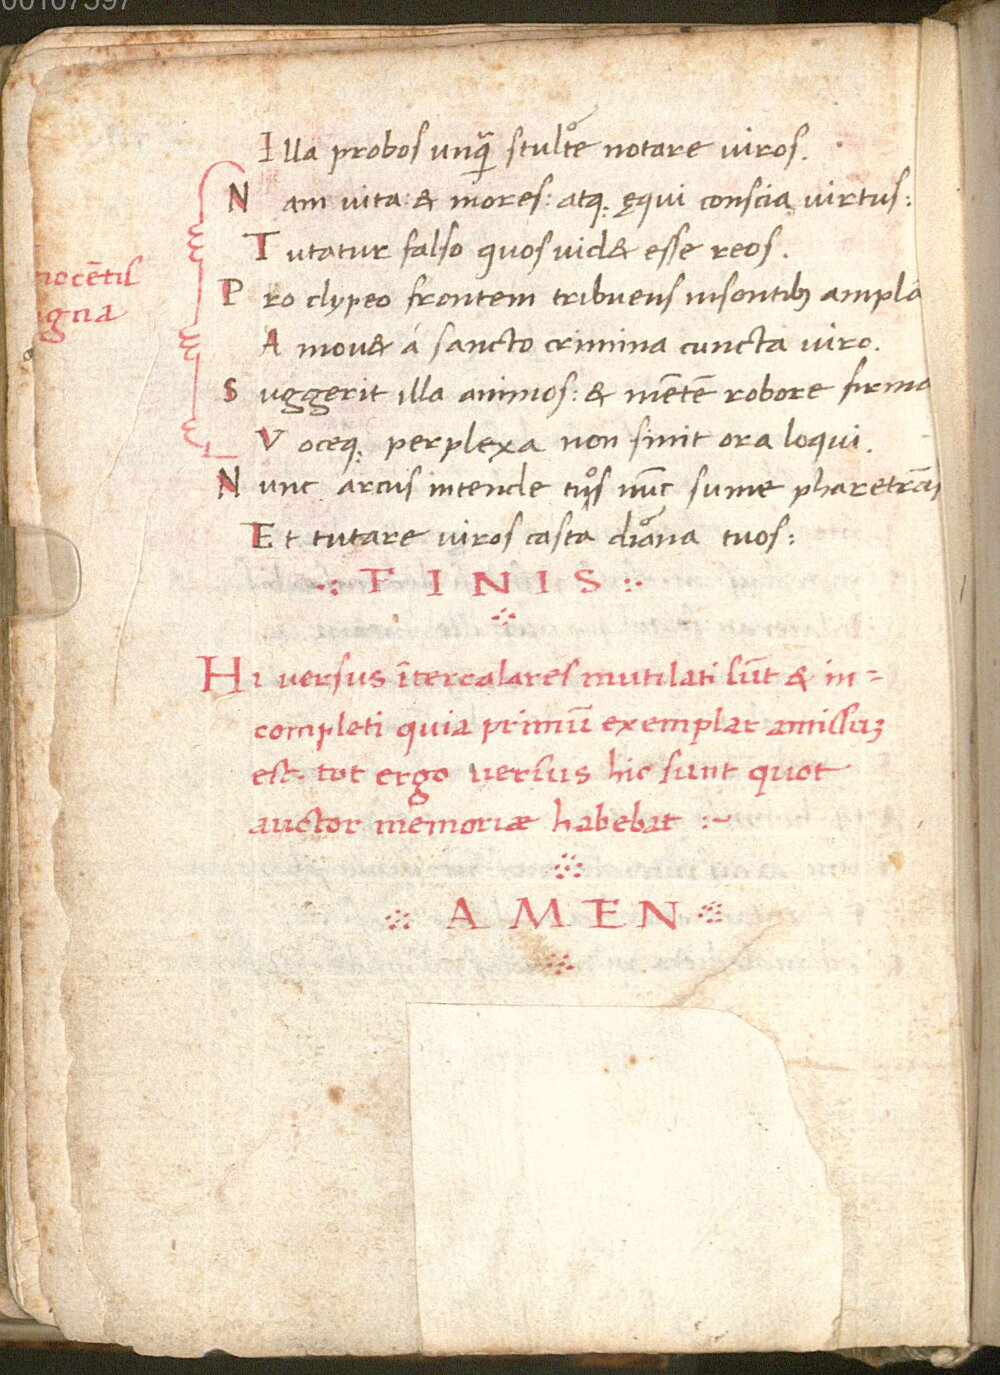 Illa probos unq̃ꝫ stulte notare uiros.
Nam uita: & mores: atq. ęqui conscia uirtus:
Tutatur falso quos uid& esse reos.
nocētis
igna
Pro clypeo frontem tribuens insontibꝫ amplā
Amou& á sancto crimina cuncta uiro.
Suggerit illa animos: & mētē robore firmo
Voceq. perplexa non sinit ora loqui.
Nunc arcus intende tuos nūc sume pharetrās
Et tutare uiros casta diana tuos:
FINIS
Hi versus ītercalares mutilati sūt & in=
completi quia primū exemplar amissuꝫ
est. tot ergo versus hic sunt quot
auctor memoriæ habebat :~
AMEN